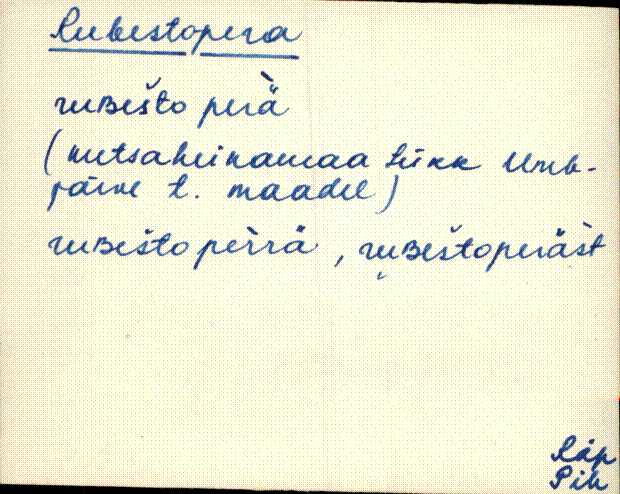 Rubestopera
ruʙešto pe̮rä̀
(metsaheinamaa tükk Umb-
järve t. maadel)
ruʙešto pèrrä, ruʙeštoperä̀st
Räp
Pih